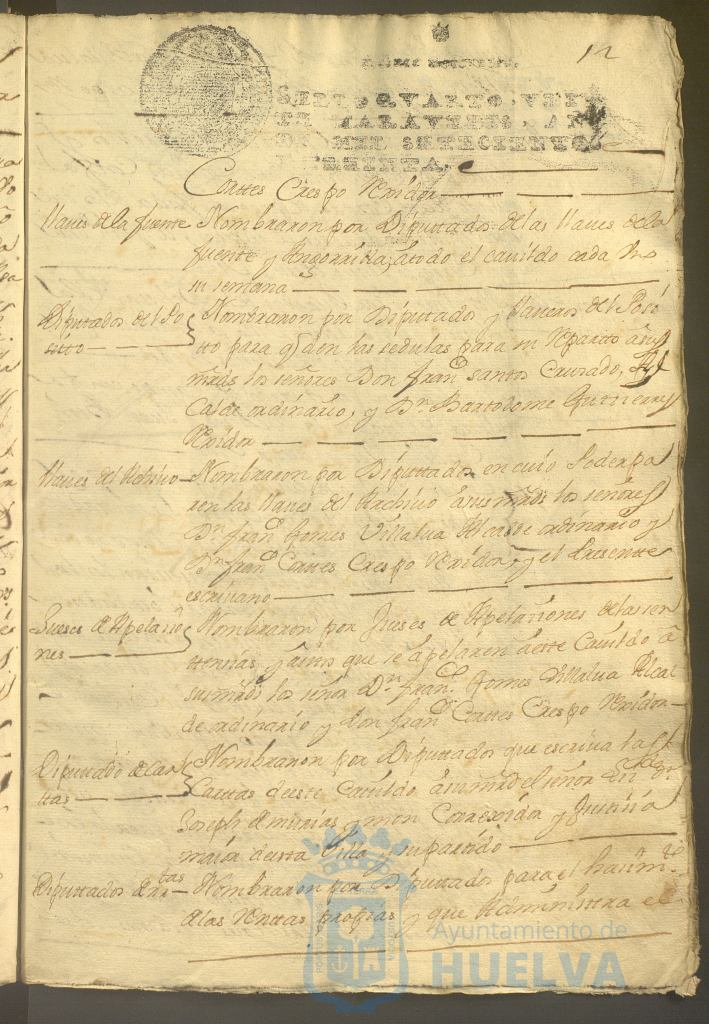 12
Corttes Crespo Rexidor
llaves de la fuente
Nombraron por Diputtados de las llaves de la
fuente y Angorrilla, âtodo el cavildo cada Uno
su semana
Diputados del Po
sitto
Nombraron por Diputtados y llaveros del Posi
tto para q den las sedulas para su Reparto âsus
mrds los señores Don Franco santos Cruzado, Al
calde ordinario, y Dn Bartolome Guttierres
Rexidor
llaves del Archivo
Nombraron por Diputtados en cuio Poder pa
ren las llaves del Archivo âsus mrds los señores
Dn Franco Gomes Villalua Alcalde ordinario y
Dn Franco Corttes Crespo Rexidor, y el Presente
escrivano
Jueses de Apelacio
nes
Nombraron por Jueses de Apelaciones de las sen
ttencias, y auttos que se apelaren âeste Cavildo â
sus mrds los señor Dn Franco Gomes Villalua Alcal
de ordinario y don Franco Corttes Crespo Rexidor
Diputtado de Car
ttas
Nombraron por Diputtados que escriva las
Carttas deeste Cavildo âsu mrd el señor Lizdo Dn
Joseph de murias ymon Correxidor y Justicia
maior deesta Villa y su partido
Diputtados de Rtas
Nombraron por Diputtados para el hacimto
de las Renttas propias y que Administtra el
Ayuntamiento de
HUELVA